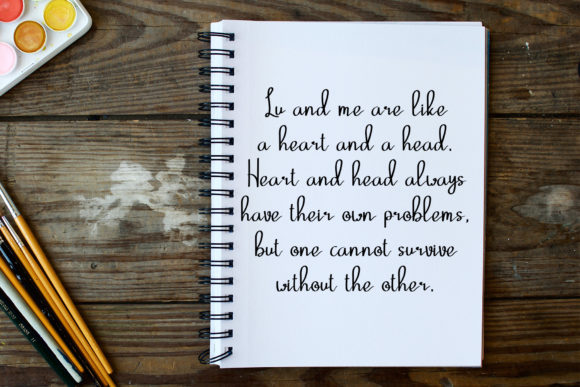 Lu and me are like
a heart and a head.
Heart and head always
have their own problems,
but one cannot survive
without the other.